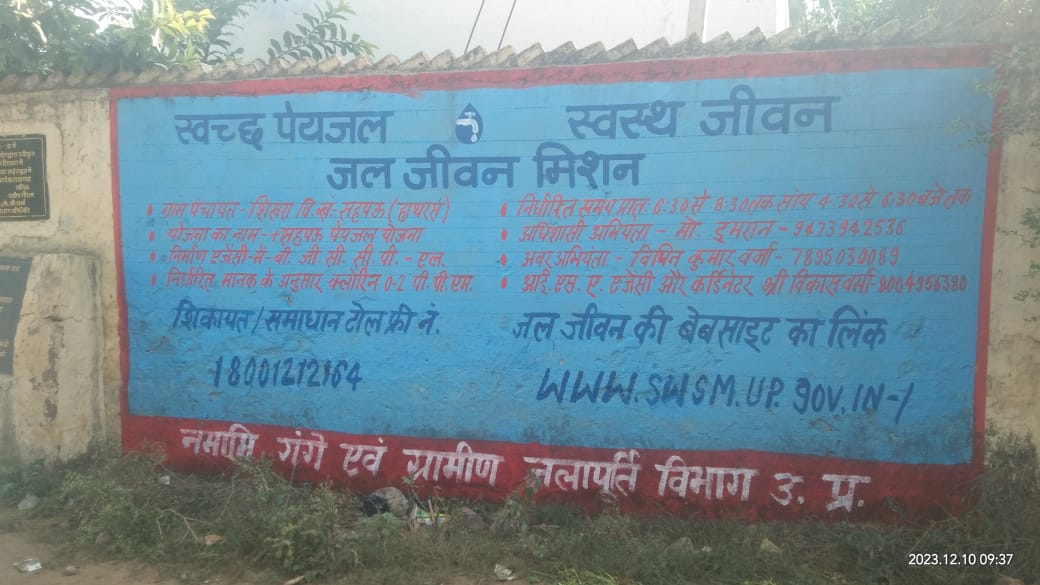 स्वच्छ पेयजल स्वस्थ जीवन
जल जीवन मिशन
ग्राम पंचायत - शिखरा वि.खं. सहपऊ (हाथरस)
योजना का नाम - सहपऊ पेयजल योजना
निर्माण एजेंसी - मै. बी. जी. सी. सी. पी. - एल.
निर्धारित मानक के अनुसार क्लोरिन 0-2 पी. पी. एम.
निर्धारित समय प्रातः 6:30 से 8:30 तक सांय 4:30 से 6:30 बजे तक
अधिशासी अभियता - मौ. इमरान - 9473942536
अवर अभियता - विपिन कुमार वर्जा - 7895030089
आई. एस. ए. एजेंसी और कर्डिनेटर श्री विकास वर्मा - 9004956380
शिकायत/समाधान टोल फ्री नं.
18001212164
जल जीवन की बेबसाइट का लिंक
WWW.SWSM.UP.GOV.IN-/
नमामि गंगे एवं ग्रामीण जलापर्ति विभाग उ. प्र.
2023.12.10 09:37